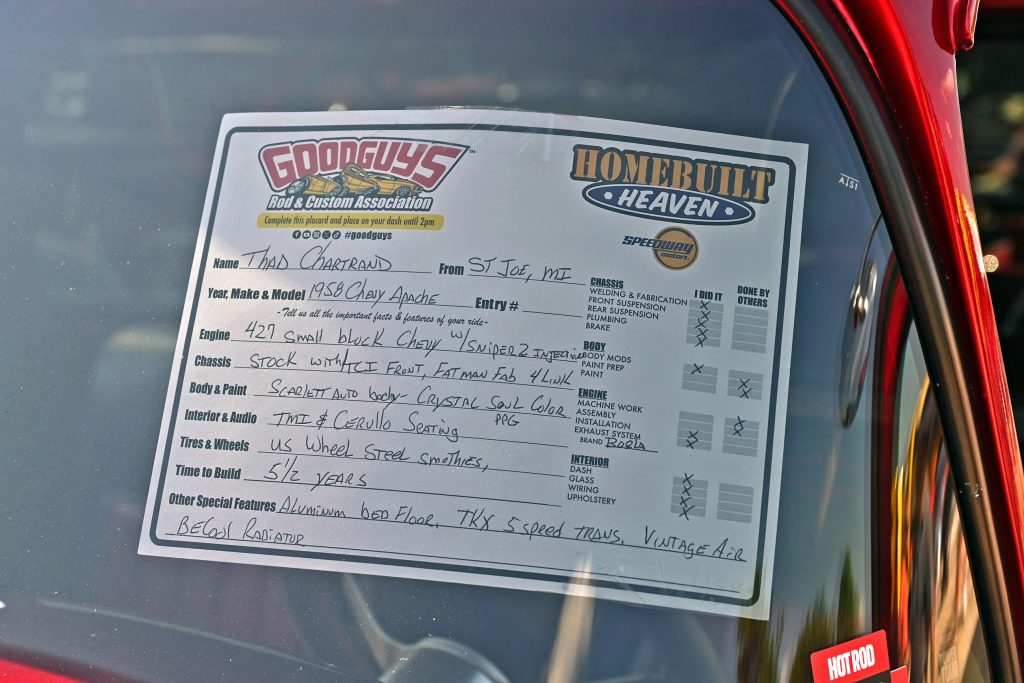 GOODGUYS™
Rod & Custom Association
Complete this placard and place on your dash until 2pm
#goodguys
HOMEBUILT
HEAVEN
SPEEDWAY
motors.
Name Thad Chartrand From St Joe, MI
Year, Make & Model 1958 Chevy Apache Entry #
-Tell us all the important facts & features of your ride-
Engine 427 Small block Chevy w/Sniper 2 Injection
Chassis Stock with/TCI Front, Fatman Fab 4 Link
Body & Paint Scarlett Auto body- Crystal Soul Color
PPG
Interior & Audio TMI & Cerullo Seating
Tires & Wheels US Wheel Steel Smothies,
Time to Build 5 1/2 years
Other Special Features Aluminum bed Floor, TKX 5 speed trans, Vintage Air
BeCool Radiator
I DID IT
DONE BY
OTHERS
CHASSIS
WELDING & FABRICATION X
FRONT SUSPENSION X
REAR SUSPENSION X
PLUMBING X
BRAKE X
BODY
BODY MODS X
PAINT PREP X
PAINT X
ENGINE
MACHINE WORK X
ASSEMBLY X
INSTALLATION X
EXHAUST SYSTEM X
BRAND Borla
INTERIOR
DASH X
GLASS X
WIRING X
UPHOLSTERY X
AISI
HOT ROD